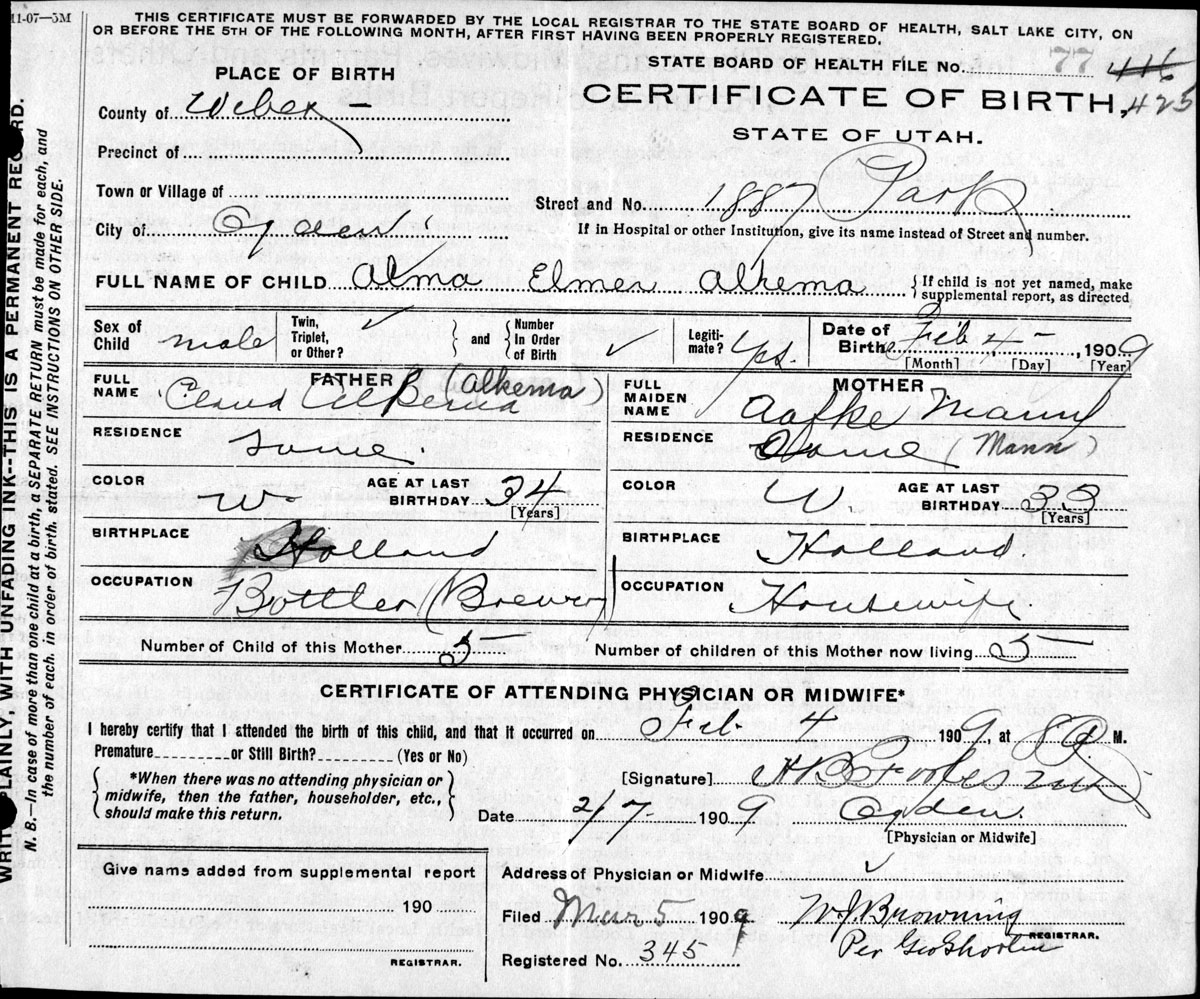 11-07—5M
THIS CERTIFICATE MUST BE FORWARDED BY THE LOCAL REGISTRAR TO THE STATE BOARD OF HEALTH, SALT LAKE CITY, ON
OR BEFORE THE 5TH OF THE FOLLOWING MONTH, AFTER FIRST HAVING BEEN PROPERLY REGISTERED.
STATE BOARD OF HEALTH FILE No. 77 416
CERTIFICATE OF BIRTH, 425
STATE OF UTAH.
PLACE OF BIRTH
County of Weber
Precinct of
Town or Village of
Street and No. 1887 Park
City of Ogden
If in Hospital or other Institution, give its name instead of Street and number.
FULL NAME OF CHILD Alma Elmer Alkema
If child is not yet named, make supplemental report, as directed
Sex of Child male
Twin, Triplet, or Other? ✓ and Number In Order of Birth ✓
Legitimate? Yes.
Date of Birth Feb 4, 1909
[Month] [Day] [Year]
FATHER
FULL NAME (Alkema)
RESIDENCE Same.
COLOR W- AGE AT LAST BIRTHDAY 34
[Years]
BIRTHPLACE Holland
OCCUPATION Bottler (Brewery)
MOTHER
FULL MAIDEN NAME Aafke
RESIDENCE Same (Mann)
COLOR W. AGE AT LAST BIRTHDAY 33
[Years]
BIRTHPLACE Holland.
OCCUPATION Housewife
Number of Child of this Mother 5 Number of children of this Mother now living 5
CERTIFICATE OF ATTENDING PHYSICIAN OR MIDWIFE*
I hereby certify that I attended the birth of this child, and that it occurred on Feb. 4 1909, at 8 A M.
Premature or Still Birth? (Yes or No)
*When there was no attending physician or
midwife, then the father, householder, etc.,
should make this return.
[Signature]
Date 2/7- 1909 Ogden.
[Physician or Midwife]
Address of Physician or Midwife ✓
Give name added from supplemental report
190
REGISTRAR.
Filed Mar 5 1909 W.J. Browning
REGISTRAR.
Per Geo
Registered No. 345
WRITE PLAINLY, WITH UNFADING INK--THIS IS A PERMANENT RECORD.
N. B.—In case of more than one child at a birth, a SEPARATE RETURN must be made for each, and
the number of each, in order of birth, stated. SEE INSTRUCTIONS ON OTHER SIDE.